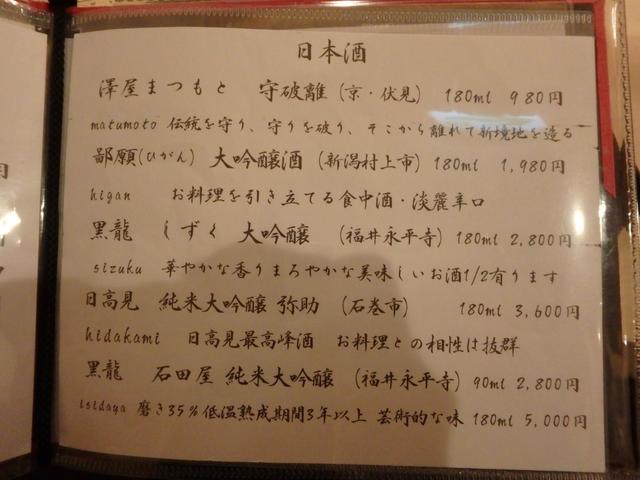 日本酒
澤屋まつもと 守破離 (京・伏見) 180ml 980円
matumoto 伝統を守り、守りを破り、そこから離れて新境地を造る
鄙願(ひがん) 大吟醸酒 (新潟村上市) 180ml 1,980円
higan お料理を引き立てる食中酒・淡麗辛口
黒龍 しずく 大吟醸 (福井永平寺) 180ml 2,800円
sizuku 華やかな香りまろやかな美味しいお酒1/2有ります
日高見 純米大吟醸 弥助 (石巻市) 180ml 3,600円
hidakami 日高見最高峰酒 お料理との相性は抜群
黒龍 石田屋 純米大吟醸 (福井永平寺) 90ml 2,800円
isidaya 磨き35%低温熟成期間3年以上 芸術的な味 180ml 5,000円